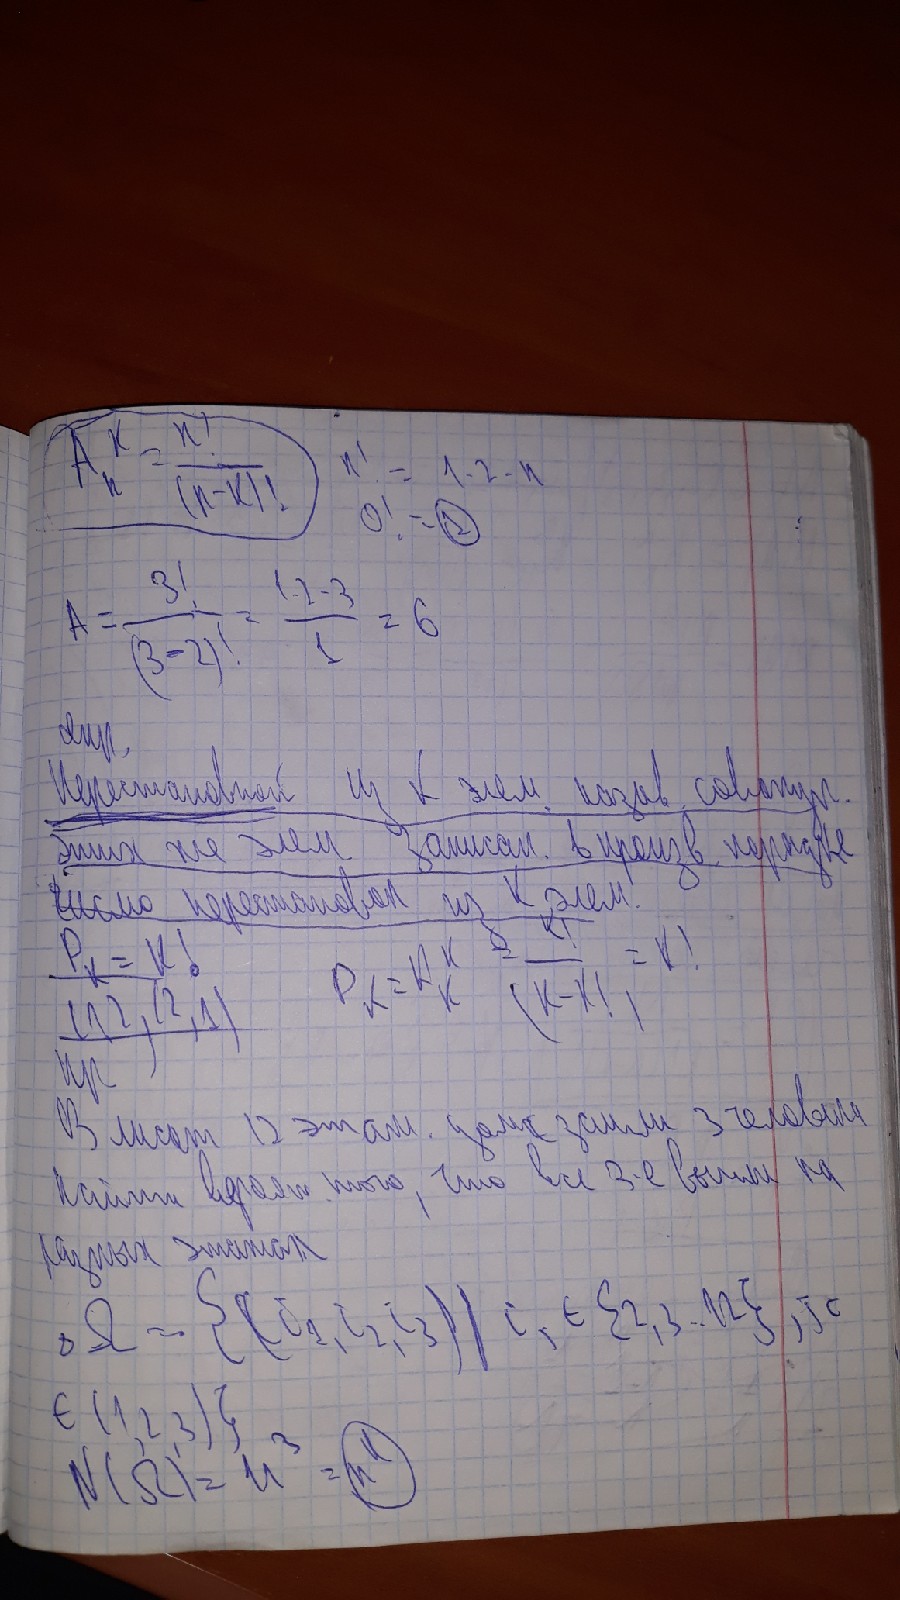 A_n^k = n!/(n-k)!   n! = 1·2·n
0! = 1
A = 3!/(3-2)! = 1·2·3/1 = 6
Перестановкой из k элем. назыв. совокуп.
этих же элем. записан. в произв. порядке
число перестановок из k элем.
P_k = k!   P_k = A_k^k = k!/(k-k)! = k!
(1,2, (2,1)
пр
В лифт 12 этаж. дома зашли 3 человека
найти вероят. того, что все 3-е вышли на
разных этажах
Ω = {(i_1, i_2, i_3) | i_j ∈ {2,3..12}, j
∈ (1,2,3)}
N(Ω) = 11^3 = n^k